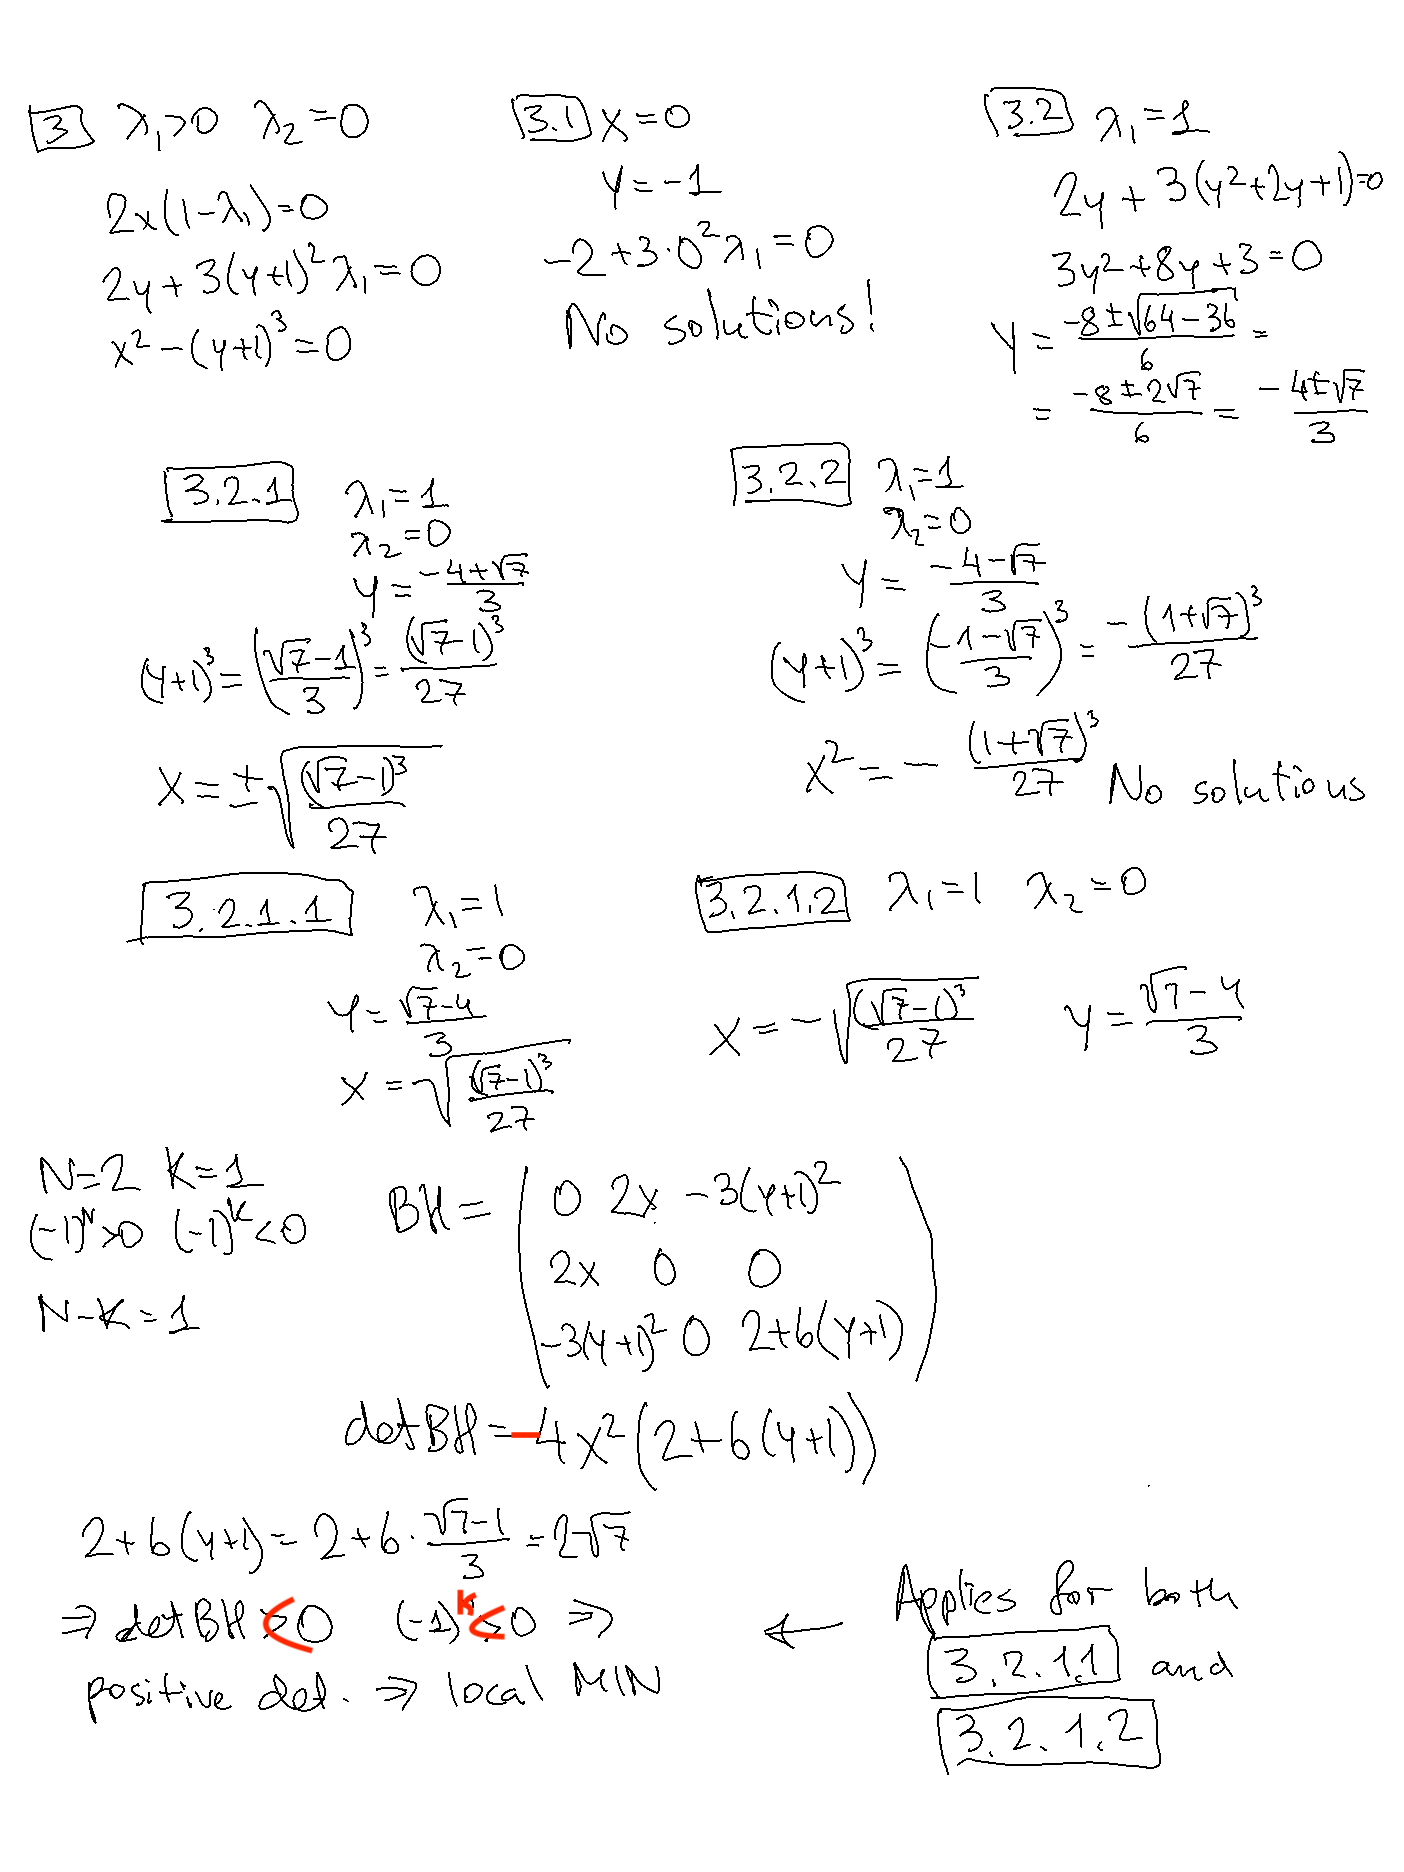 3 λ₁>0 λ₂=0
2x(1-λ₁)=0
2y+3(y+1)²λ₁=0
x²-(y+1)³=0
3.1 x=0
y=-1
-2+3·0²λ₁=0
No solutions!
3.2 λ₁=1
2y+3(y²+2y+1)=0
3y²+8y+3=0
y = (-8±√(64-36))/6 =
= (-8±2√7)/6 = (-4±√7)/3
3.2.1 λ₁=1
λ₂=0
y = (-4+√7)/3
(y+1)³ = ((√7-1)/3)³ = (√7-1)³/27
x = ±√((√7-1)³/27)
3.2.2 λ₁=1
λ₂=0
y = (-4-√7)/3
(y+1)³ = ((-1-√7)/3)³ = -(1+√7)³/27
x² = -(1+√7)³/27 No solutions
3.2.1.1 λ₁=1
λ₂=0
y = (√7-4)/3
x = √((√7-1)³/27)
3.2.1.2 λ₁=1 λ₂=0
x = -√((√7-1)³/27) y = (√7-4)/3
N=2 K=1
(-1)ᴺ>0 (-1)ᴷ<0
N-K=1
BH = ( 0 2x -3(y+1)²
2x 0 0
-3(y+1)² 0 2+6(y+1) )
det BH = -4x²(2+6(y+1))
2+6(y+1) = 2+6·(√7-1)/3 = 2√7
⇒ det BH < 0 (-1)ᴷ < 0 ⇒
positive det. ⇒ local MIN
← Applies for both
3.2.1.1 and
3.2.1.2